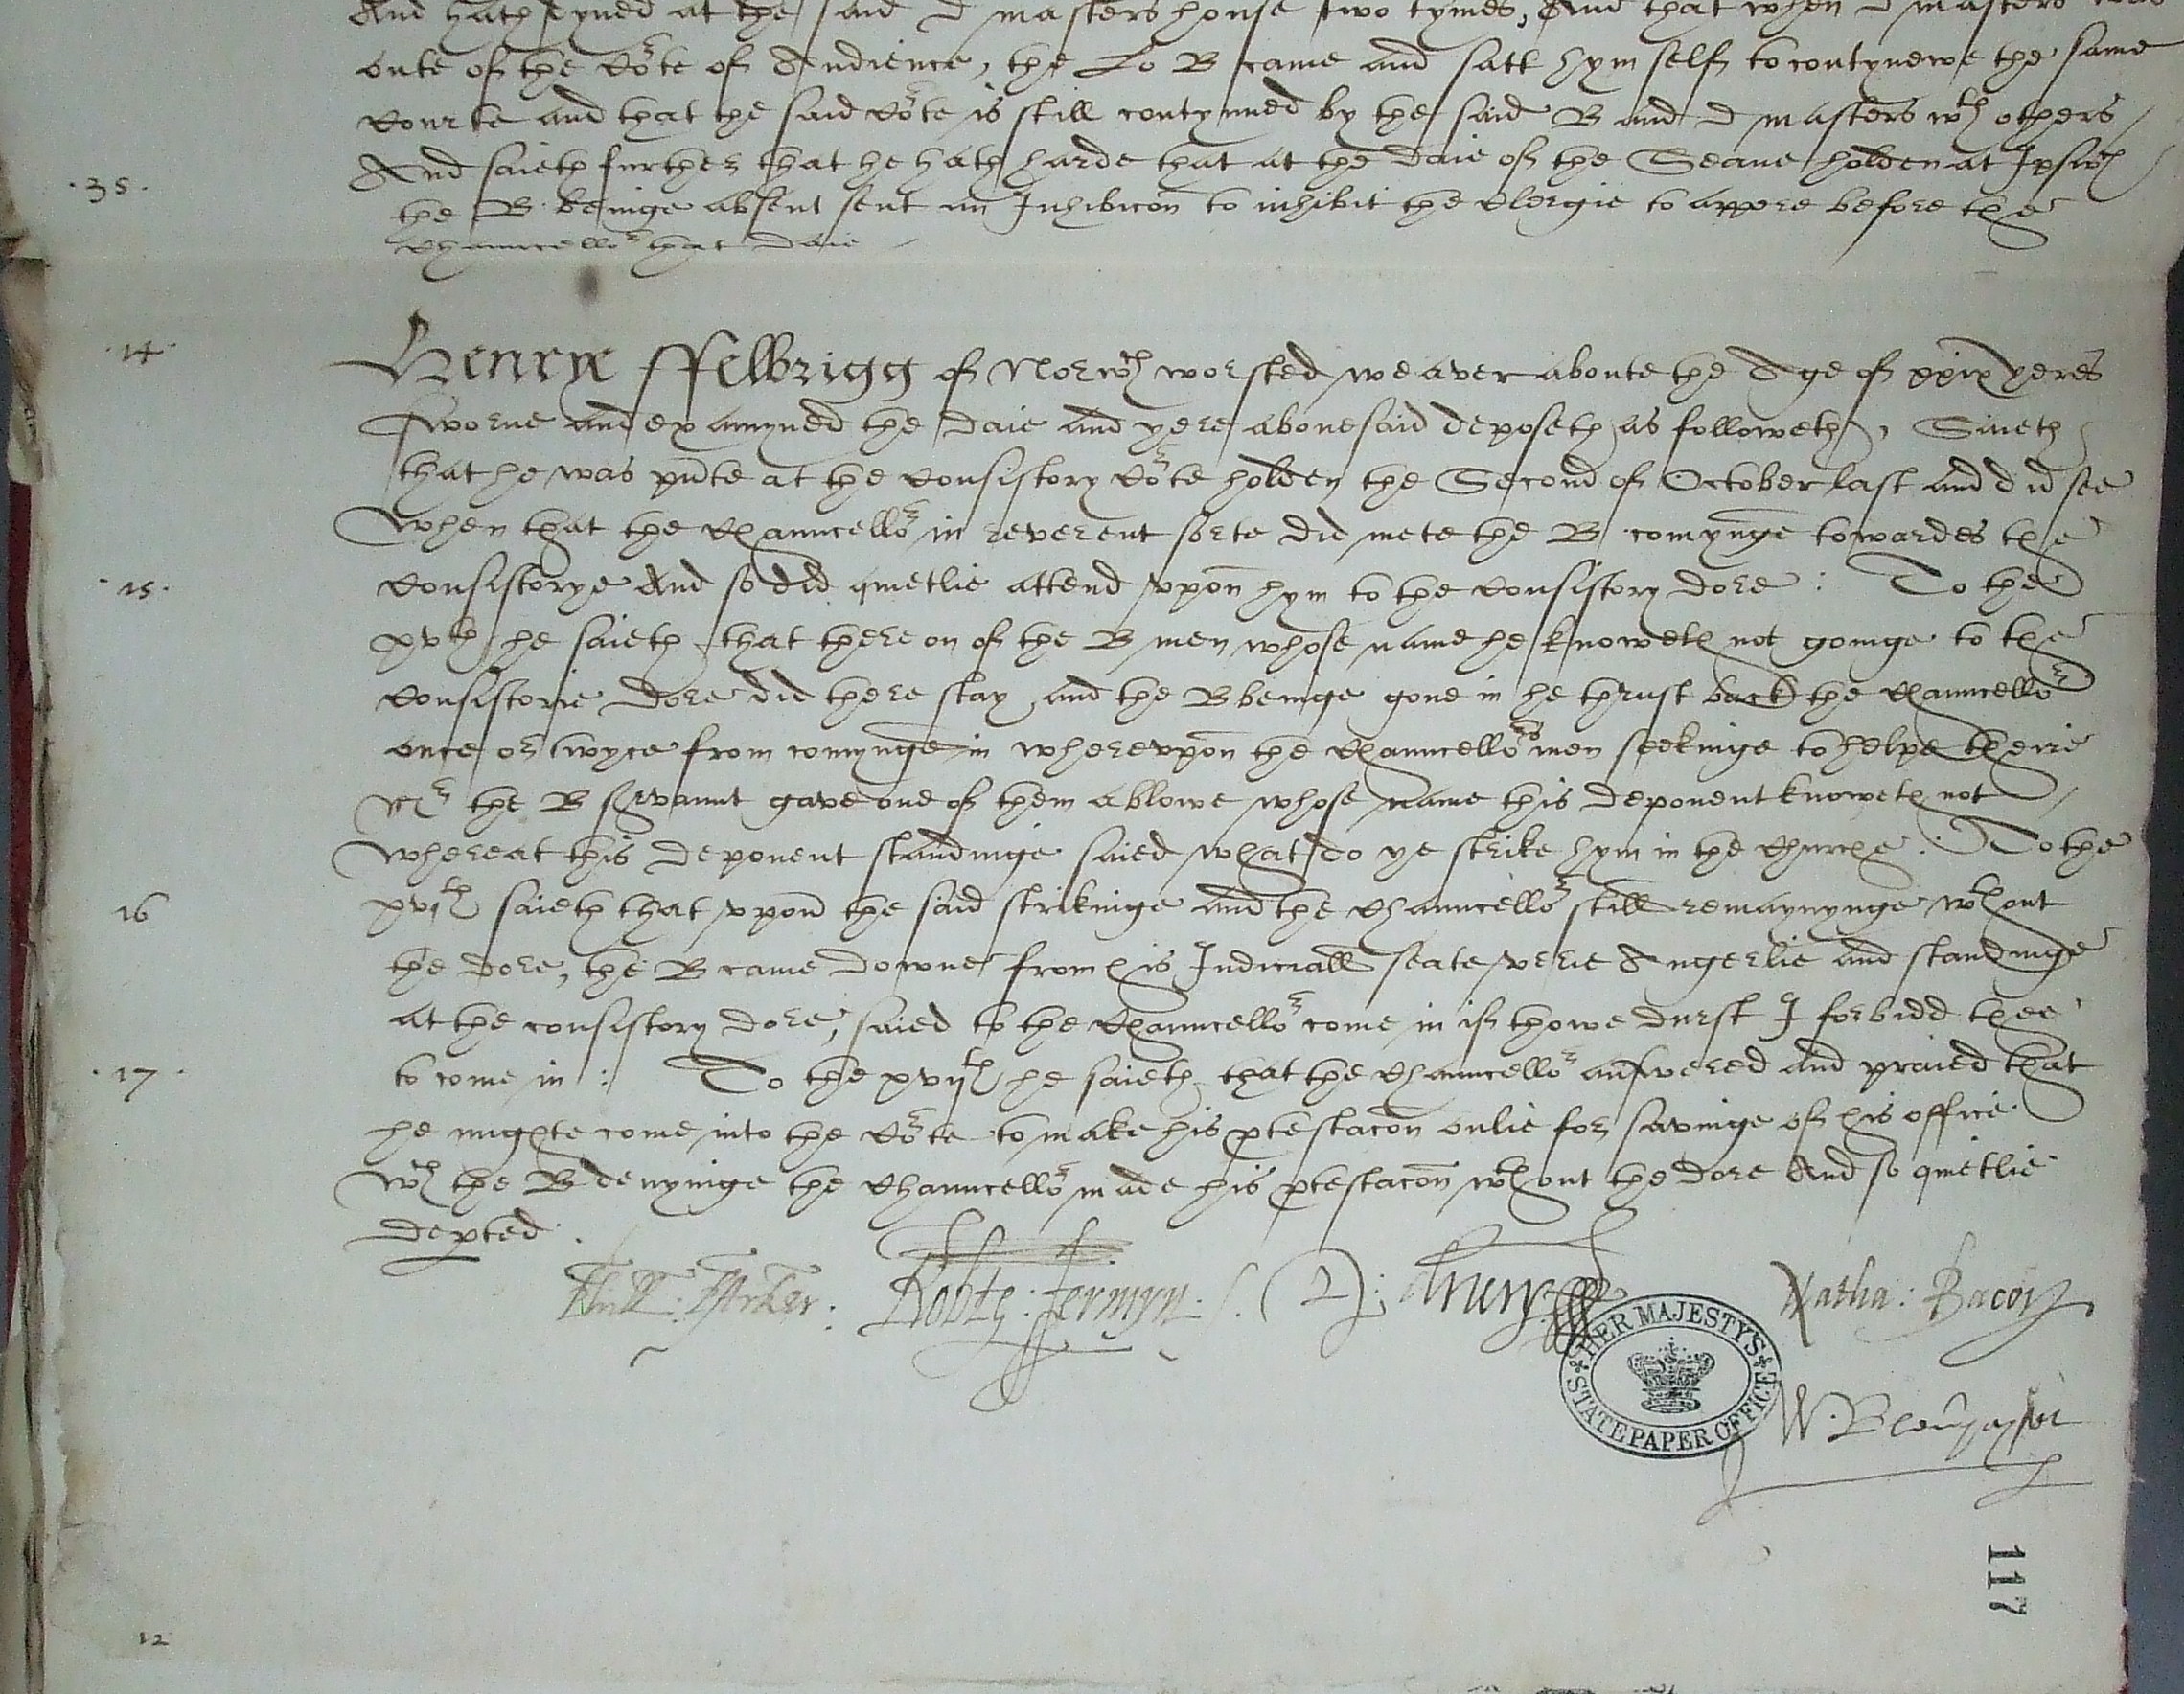 And hath dyned at the said D masters house two tymes, And that when D masters was
oute of the Corte of Audience, the Lo B came and satt hym self to contynewe the same
Courte and that the said Corte is still contynued by the said B and D masters wth others
.35. And saieth further that he hath harde that at the daie of the Seane holden at Ipswch
the B beinge absent sent an Inhibicon to inhibit the Clergie to appere before the
Chauncellor that daie
.14. Henrye ffelbrigg of Norwch worsted weaver aboute the Age of xxix yeres
sworne and examyned the daie and yere abovesaid deposeth as followeth, Saieth
that he was pnte at the Consistory Corte holden the Second of October last and did see
When that the Chauncellor in reverent sorte did mete the B comynge towardes the
.15. Consistorye And so did quietlie attend upon hym to the Consistory dore : To the
xvth he saieth that there on of the B men whose name he knoweth not goinge to the
Consistorie dore did there stay and the B beinge gone in he thrust back the Chauncellor
once or twyce from comynge in whereupon the Chauncellors men seekinge to helpe theire
Mr the B servaunt gave one of them a blowe whose name this deponent knoweth not
Whereat this deponent standinge saied what do ye strike hym in the Churche. To the
16 xvjth saieth that upon the said strikinge and the Chauncellor still remaynynge wthout
the dore, the B came downe from his Judiciall seate verie Angerlie and standinge
at the consistory dore, saied to the Chauncellor come in if thowe durst I forbidd thee
.17. to come in : To the xvijth he saieth that the Chauncellor answered and praied that
he mighte come into the Corte to make his ptestacon onlie for savinge of his office
Wch the B denyinge the Chauncellor made his ptestacon wthout the dore And so quietlie
depted.
Parker : Robte : Jermyn : Drury Natha : Bacon
HER MAJESTY'S STATE PAPER OFFICE
W.
117
12